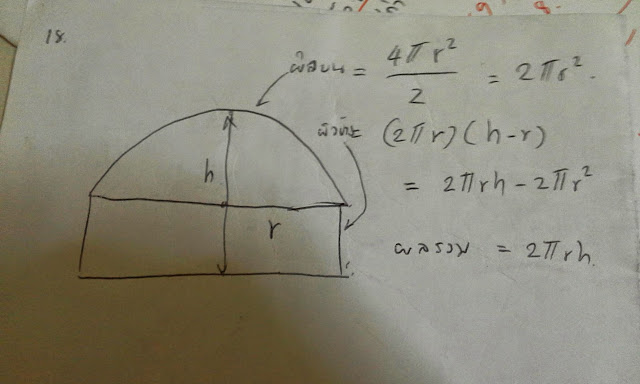 18.
ผิวบน = 4πr²/2 = 2πr².
ผิวข้าง (2πr)(h-r)
= 2πrh - 2πr²
h
r
ผลรวม = 2πrh.